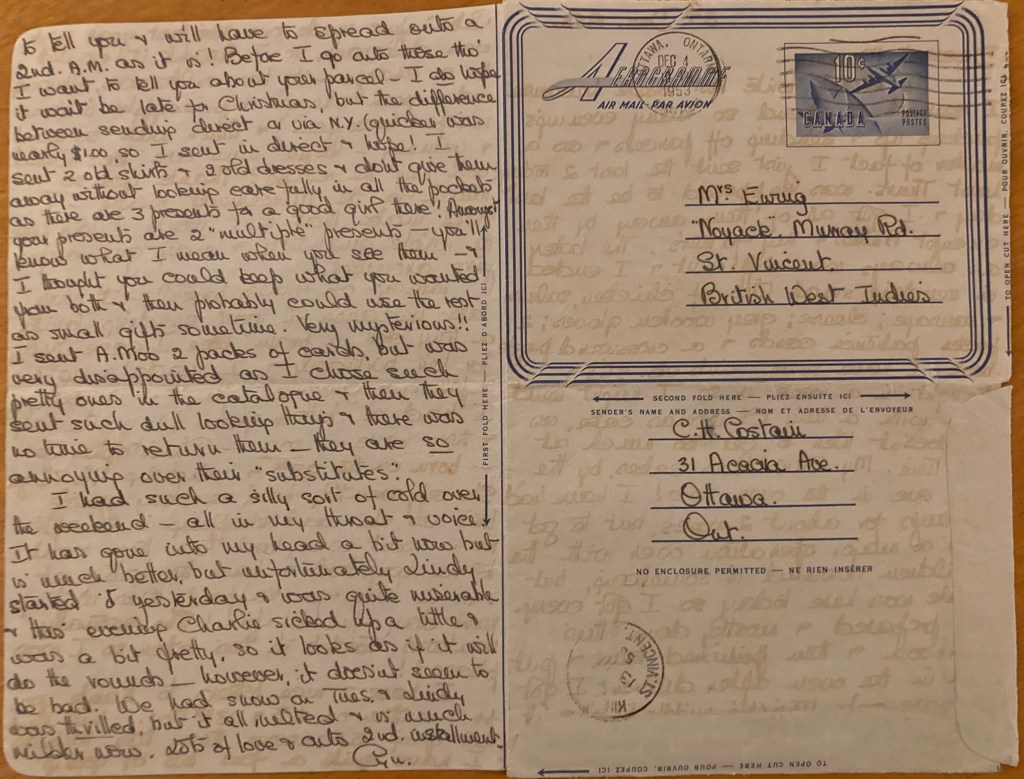 to tell you & will have to spread onto a
2nd. A.M. as it is! Before I go onto those tho'
I want to tell you about your parcel – I do hope
it won't be late for Christmas, but the difference
between sending direct & via N.Y. (quicker) was
nearly $1.00, so I sent in direct & hope! I
sent 2 old skirts & 2 old dresses & don't give them
away without looking carefully in all the pockets
as there are 3 presents for a good girl there! Amongst
your presents are 2 "multiple" presents – you'll
know what I mean when you see them – &
I thought you could keep what you wanted
you both & then probably could use the rest
as small gifts sometime. Very mysterious!!
I sent A.Moo 2 packs of cards, but was
very disappointed as I chose such
pretty ones in the catalogue & then they
sent such dull looking things & there was
no time to return them – they are so
annoying over their "substitutes".
I had such a silly sort of cold over
the weekend – all in my throat & voice.
It has gone into my head a bit now but
is much better, but unfortunately Lindy
started it yesterday & was quite miserable
& this evening Charlie sicked up a little &
was a bit fretty, so it looks as if it will
do the rounds – however, it doesn't seem to
be bad. We had snow on Tues. & Lindy
was thrilled, but it all melted & is much
milder now. Lots of love & onto 2nd. installment.
FIRST FOLD HERE — PLIEZ D'ABORD ICI
AEROGRAMME
AIR MAIL · PAR AVION
OTTAWA, ONTARIO
DEC 4
1953
10¢
CANADA
POSTAGE
POSTES
Mrs Ewing
"Noyack" Murray Rd.
St. Vincent.
British West Indies
TO OPEN CUT HERE — POUR OUVRIR, COUPEZ ICI
SECOND FOLD HERE — PLIEZ ENSUITE ICI
SENDER'S NAME AND ADDRESS — NOM ET ADRESSE DE L'ENVOYEUR
C.H. Costain
31 Acacia Ave.
Ottawa.
Ont.
NO ENCLOSURE PERMITTED — NE RIEN INSÉRER
ST. VINCENT
TO OPEN CUT HERE — POUR OUVRIR, COUPEZ ICI